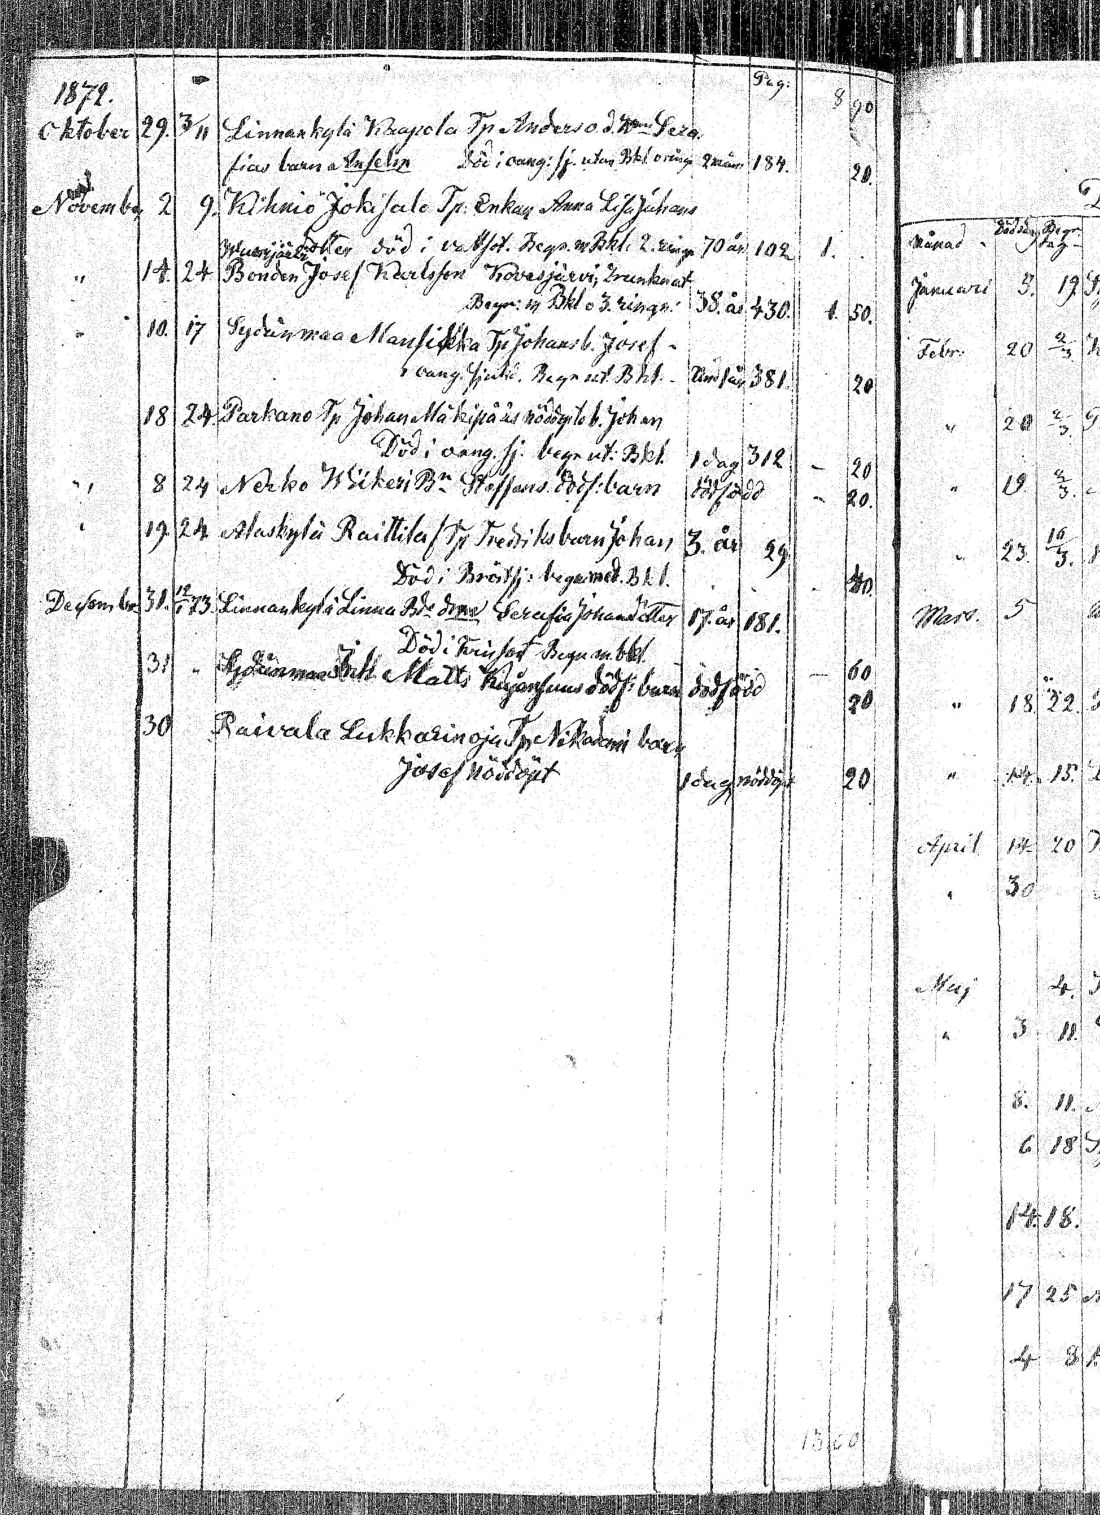 1872. Pag: 8 90
Oktober 29. 3/11 Linnankylä Kaapola Tp Anders o. d.
fias barn a Anselm Död i oang: sj. utan Bkl o ringn 2 mån 184. 20.
November 2 9. Kihniö Jokisalo Tp: Enkan Anna Lisa Juhans
dotter död i vattsot. Begr. m Bkl. 2. ringn 70 år 102 1.
" 14. 24 Bonden Josef Karlsson Kovesjärvi, Drunknat
Begr: m Bkl o 3. ringn: 38. år 430. 1. 50.
" 10. 17 Sydänmaa Mansikka Tp Johans b. Josef
oang. sjukd. Begr ut. Bkl. 381. 20
18 24. Parkano Tp Johan Mäkipääs nöddöpte b. Johan
Död i oang. sj. begr ut: Bkl. 1 dag 312 - 20
" 8 24 Nerko Wiikeri Bn Staffans. dödf: barn dödfödd - 20.
" 19. 24 Alaskylä Raittila Tp Fredriks barn Johan 3. år 29.
Död i Bröstsj: begr med. Bkl. 40.
December 31. 12/1 73. Linnankylä Linna Bde dmr Serafia Johansdotter 17. år 181.
Död i Begr m. bkl. - 60
31 " Sydänmaa Inh Matts dödf: barn dödfödd 20
30 Raivala Lukkarinoja Tp Nikodemi barn
Josef nöddöpt 1 dag nöddöpt 20
13 60
Månad Dödsdag Begr. dag
Januari 5. 19.
Febr: 20 2/3
" 20 2/3.
" 19. 2/3.
" 23. 16/3.
Mars. 5
" 18. 22.
" 14. 15.
April 14 20
" 30
Maj 4.
" 3 11.
8. 11.
6 18
14. 18.
17 25
4 8